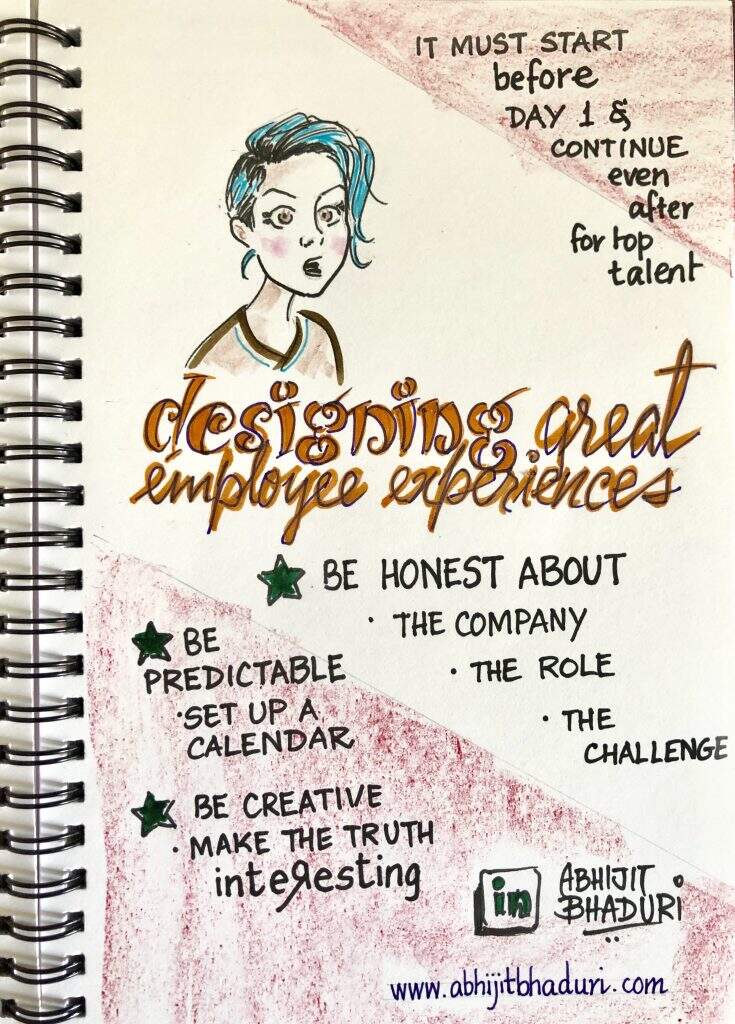 IT MUST START
before
DAY 1 &
CONTINUE
even
after
for top
talent
designing great
employee experiences
BE HONEST ABOUT
· THE COMPANY
· THE ROLE
· THE
CHALLENGE
BE
PREDICTABLE
· SET UP A
CALENDAR
BE CREATIVE
· MAKE THE TRUTH
inteResting
in ABHIJIT
BHADURI
www.abhijitbhaduri.com